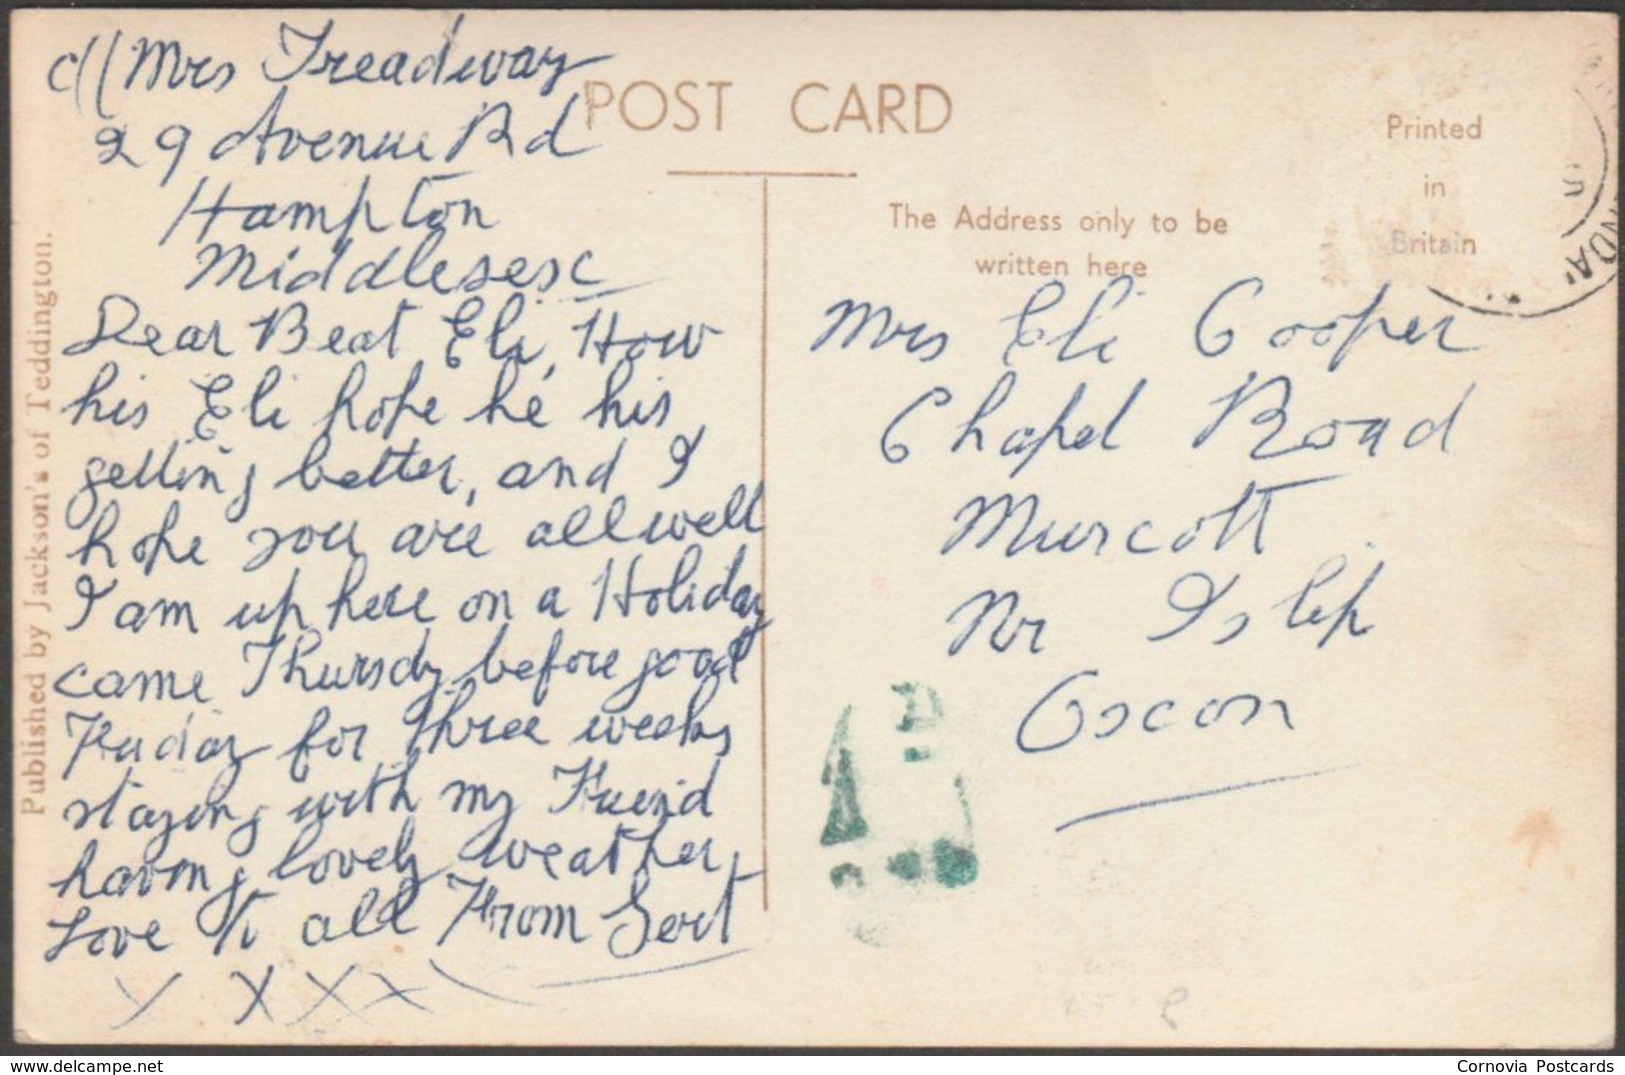 c// Mrs Treadway
29 Avenue Rd
Hampton
Middlesesc
Dear Beat Eli, How
his Eli hope he his
getting better, and I
hope you are all well
I am up here on a Holiday
came Thursdy before good
Friday for three weeks
staying with my Friend
having lovely weather,
Love to all From Gert
X X X X X
Published by Jackson's of Teddington.
POST CARD
The Address only to be
written here
Printed
in
Britain
Mrs Eli Cooper
Chapel Road
Murcott
Nr Islip
Oscon
Cornovia Postcards